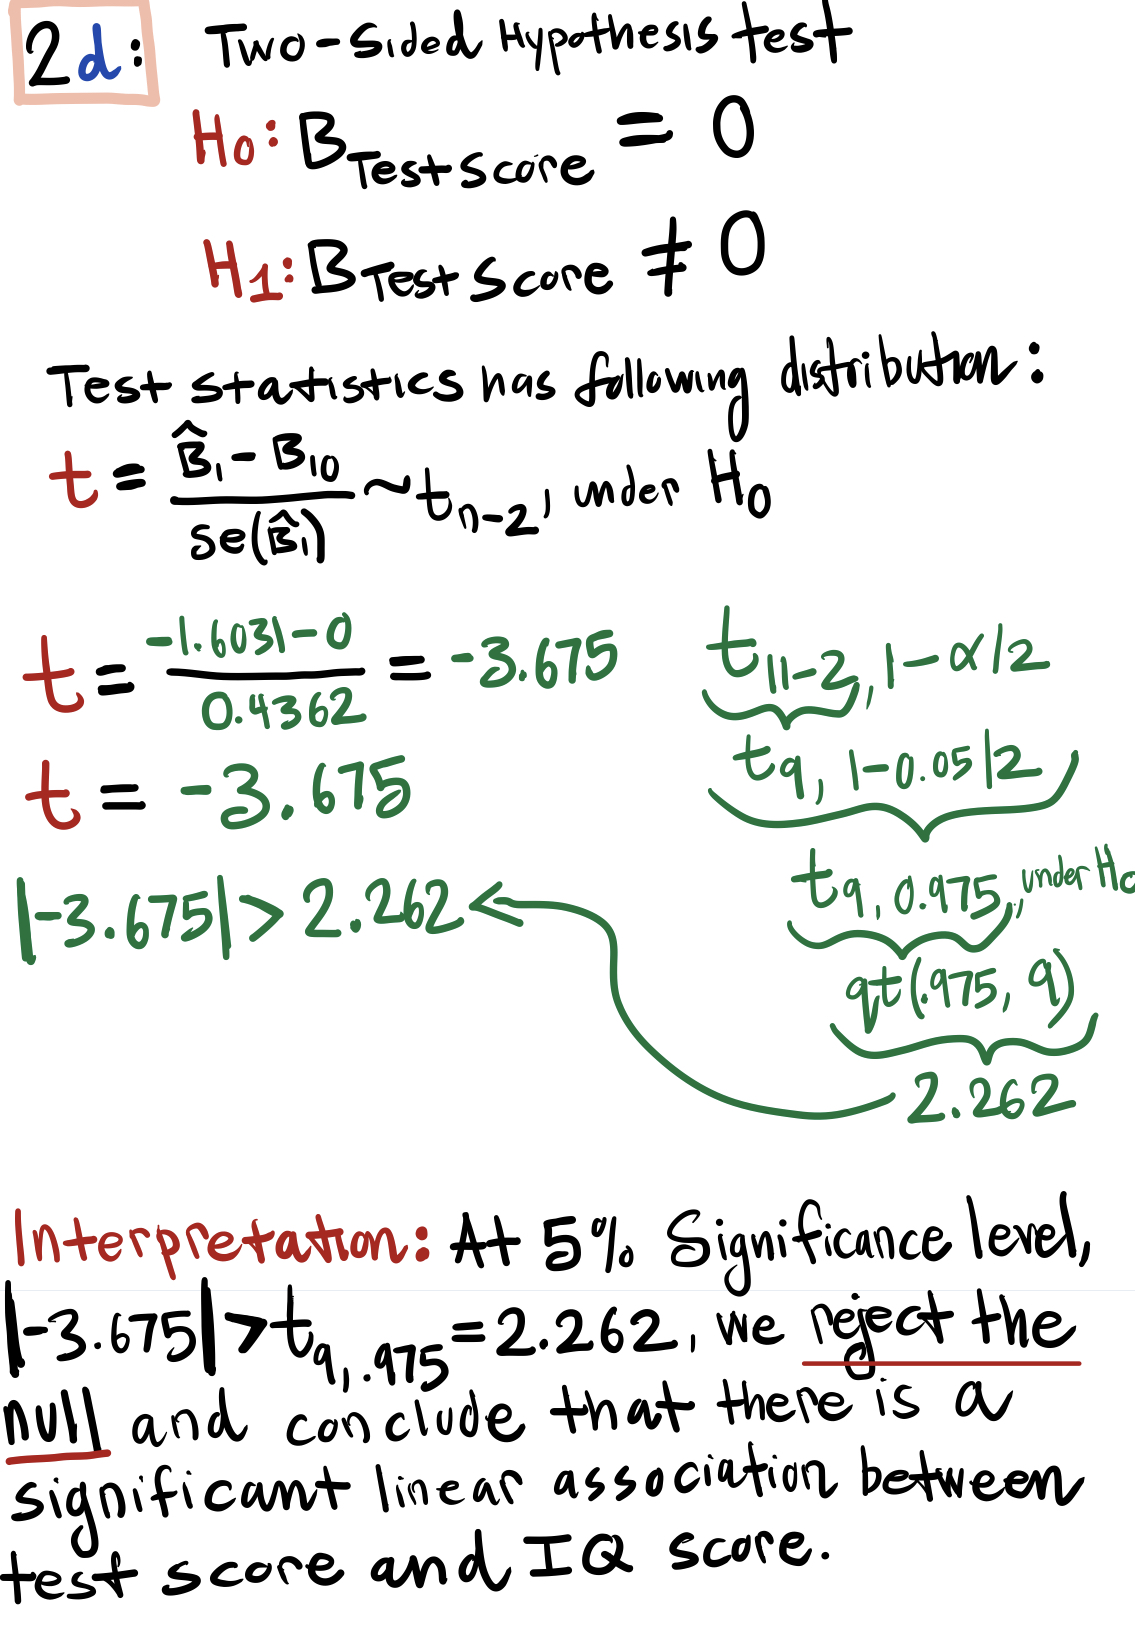 2d: Two-Sided Hypothesis test
H₀: B_TestScore = 0
H₁: B_TestScore ≠ 0
Test statistics has following distribution:
t = (B̂₁ - B₁₀) / se(B̂₁) ~ t_n-2, under H₀
t = (-1.6031-0) / 0.4362 = -3.675
t = -3.675
|-3.675| > 2.262
t_11-2, 1-α/2
t_9, 1-0.05/2
t_9, 0.975, under H₀
qt(.975, 9)
2.262
Interpretation: At 5% Significance level,
|-3.675| > t_9,.975 = 2.262, we reject the
null and conclude that there is a
significant linear association between
test score and IQ score.